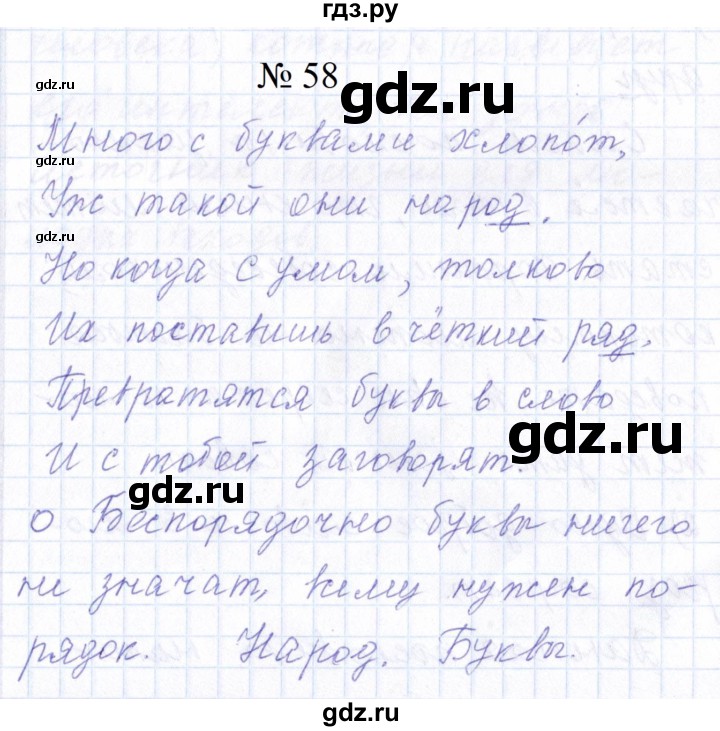 гдз.ру
№ 58
gdz.ru
gdz.ru
Много с буквами хлопо́т,
gdz.ru
Уж такой они народ.
gdz.ru
Но когда с умом, толково
Их поставишь в чёткий ряд.
Превратятся буквы в слово
gdz.ru
И с тобой заговорят.
gdz.ru
о Беспорядочно буквы ничего
не значат, нужен по-
рядок. Народ. Буквы.
gdz.ru
gdz.ru